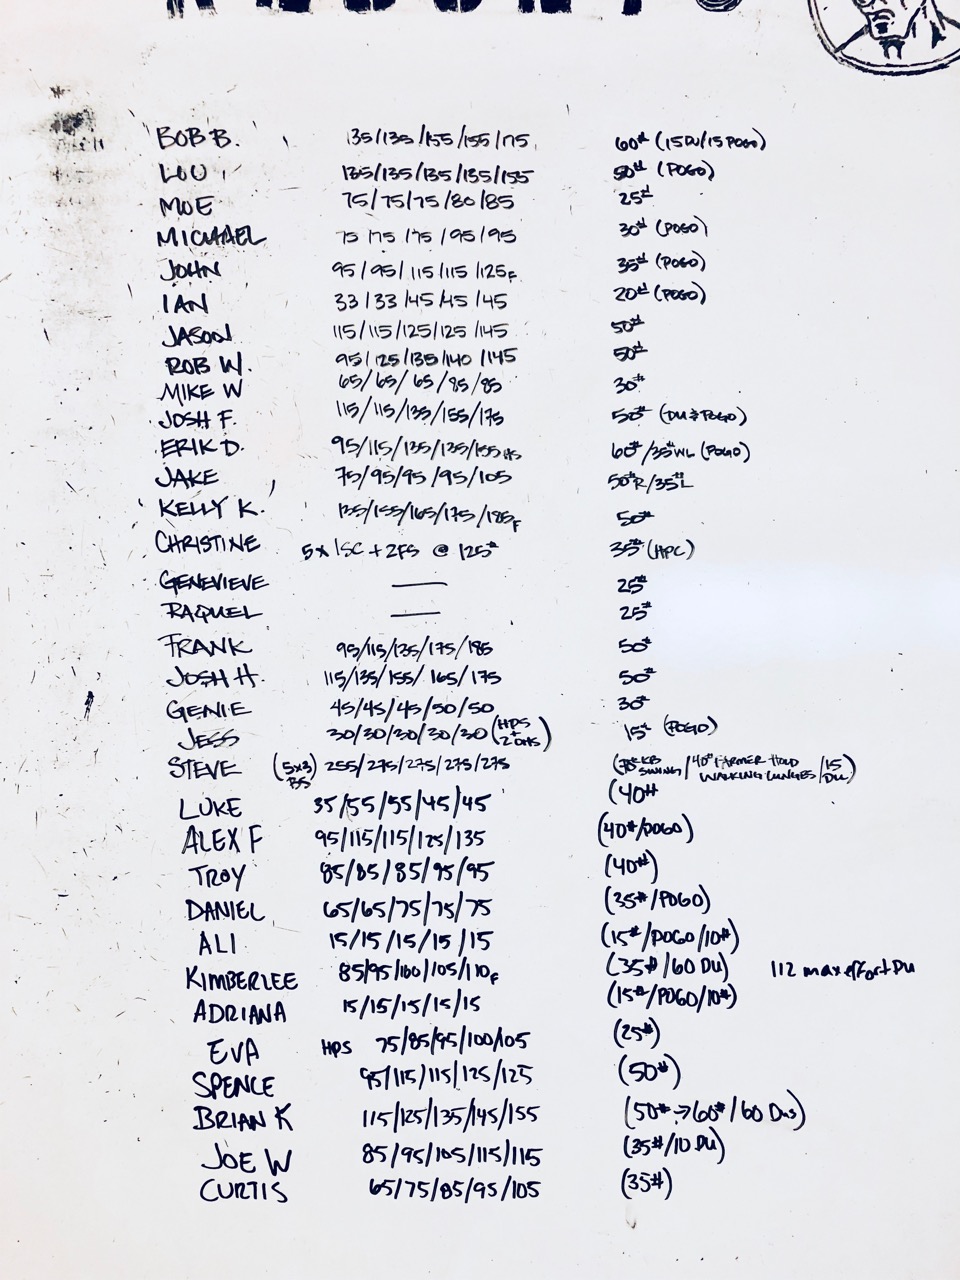 BOB B. 135/135/155/155/175 60# (15DU/15 POGO)
LOU 135/135/135/135/155 50# (POGO)
MOE 75/75/75/80/85 25#
MICHAEL 75/75/75/95/95 30# (POGO)
JOHN 95/95/115/115/125F 35# (POGO)
IAN 33/33/45/45/45 20# (POGO)
JASON 115/115/125/125/145 50#
ROB W. 95/125/135/140/145 50#
MIKE W 65/65/65/85/85 30#
JOSH F. 115/115/135/155/175 50# (DU & POGO)
ERIK D. 95/115/135/135/155HS 60#/35#WL (POGO)
JAKE 75/95/95/95/105 50#R/35#L
KELLY K. 135/155/165/175/185F 50#
CHRISTINE 5x 1SC + 2FS @ 125# 35# (HPC)
GENEVIEVE — 25#
RAQUEL — 25#
FRANK 95/115/135/175/185 50#
JOSH H. 115/135/155/165/175 50#
GENIE 45/45/45/50/50 30#
JESS 30/30/30/30/30 (HPS + 2 OHS) 15# (POGO)
STEVE (5x3) BS 255/275/275/275/275 (70#KB SWING/40# FARMER HOLD WALKING LUNGES/15 DU)
LUKE 35/55/55/45/45 (40#
ALEX F 95/115/115/125/135 (40#/POGO)
TROY 85/85/85/95/95 (40#)
DANIEL 65/65/75/75/75 (35#/POGO)
ALI 15/15/15/15/15 (15#/POGO/10#)
KIMBERLEE 85/95/100/105/110F (35#/60 DU) 112 max effort DU
ADRIANA 15/15/15/15/15 (15#/POGO/10#)
EVA HPS 75/85/95/100/105 (25#)
SPENCE 95/115/115/125/125 (50#)
BRIAN K 115/125/135/145/155 (50#→60#/60 DUs)
JOE W 85/95/105/115/115 (35#/10 DU)
CURTIS 65/75/85/95/105 (35#)